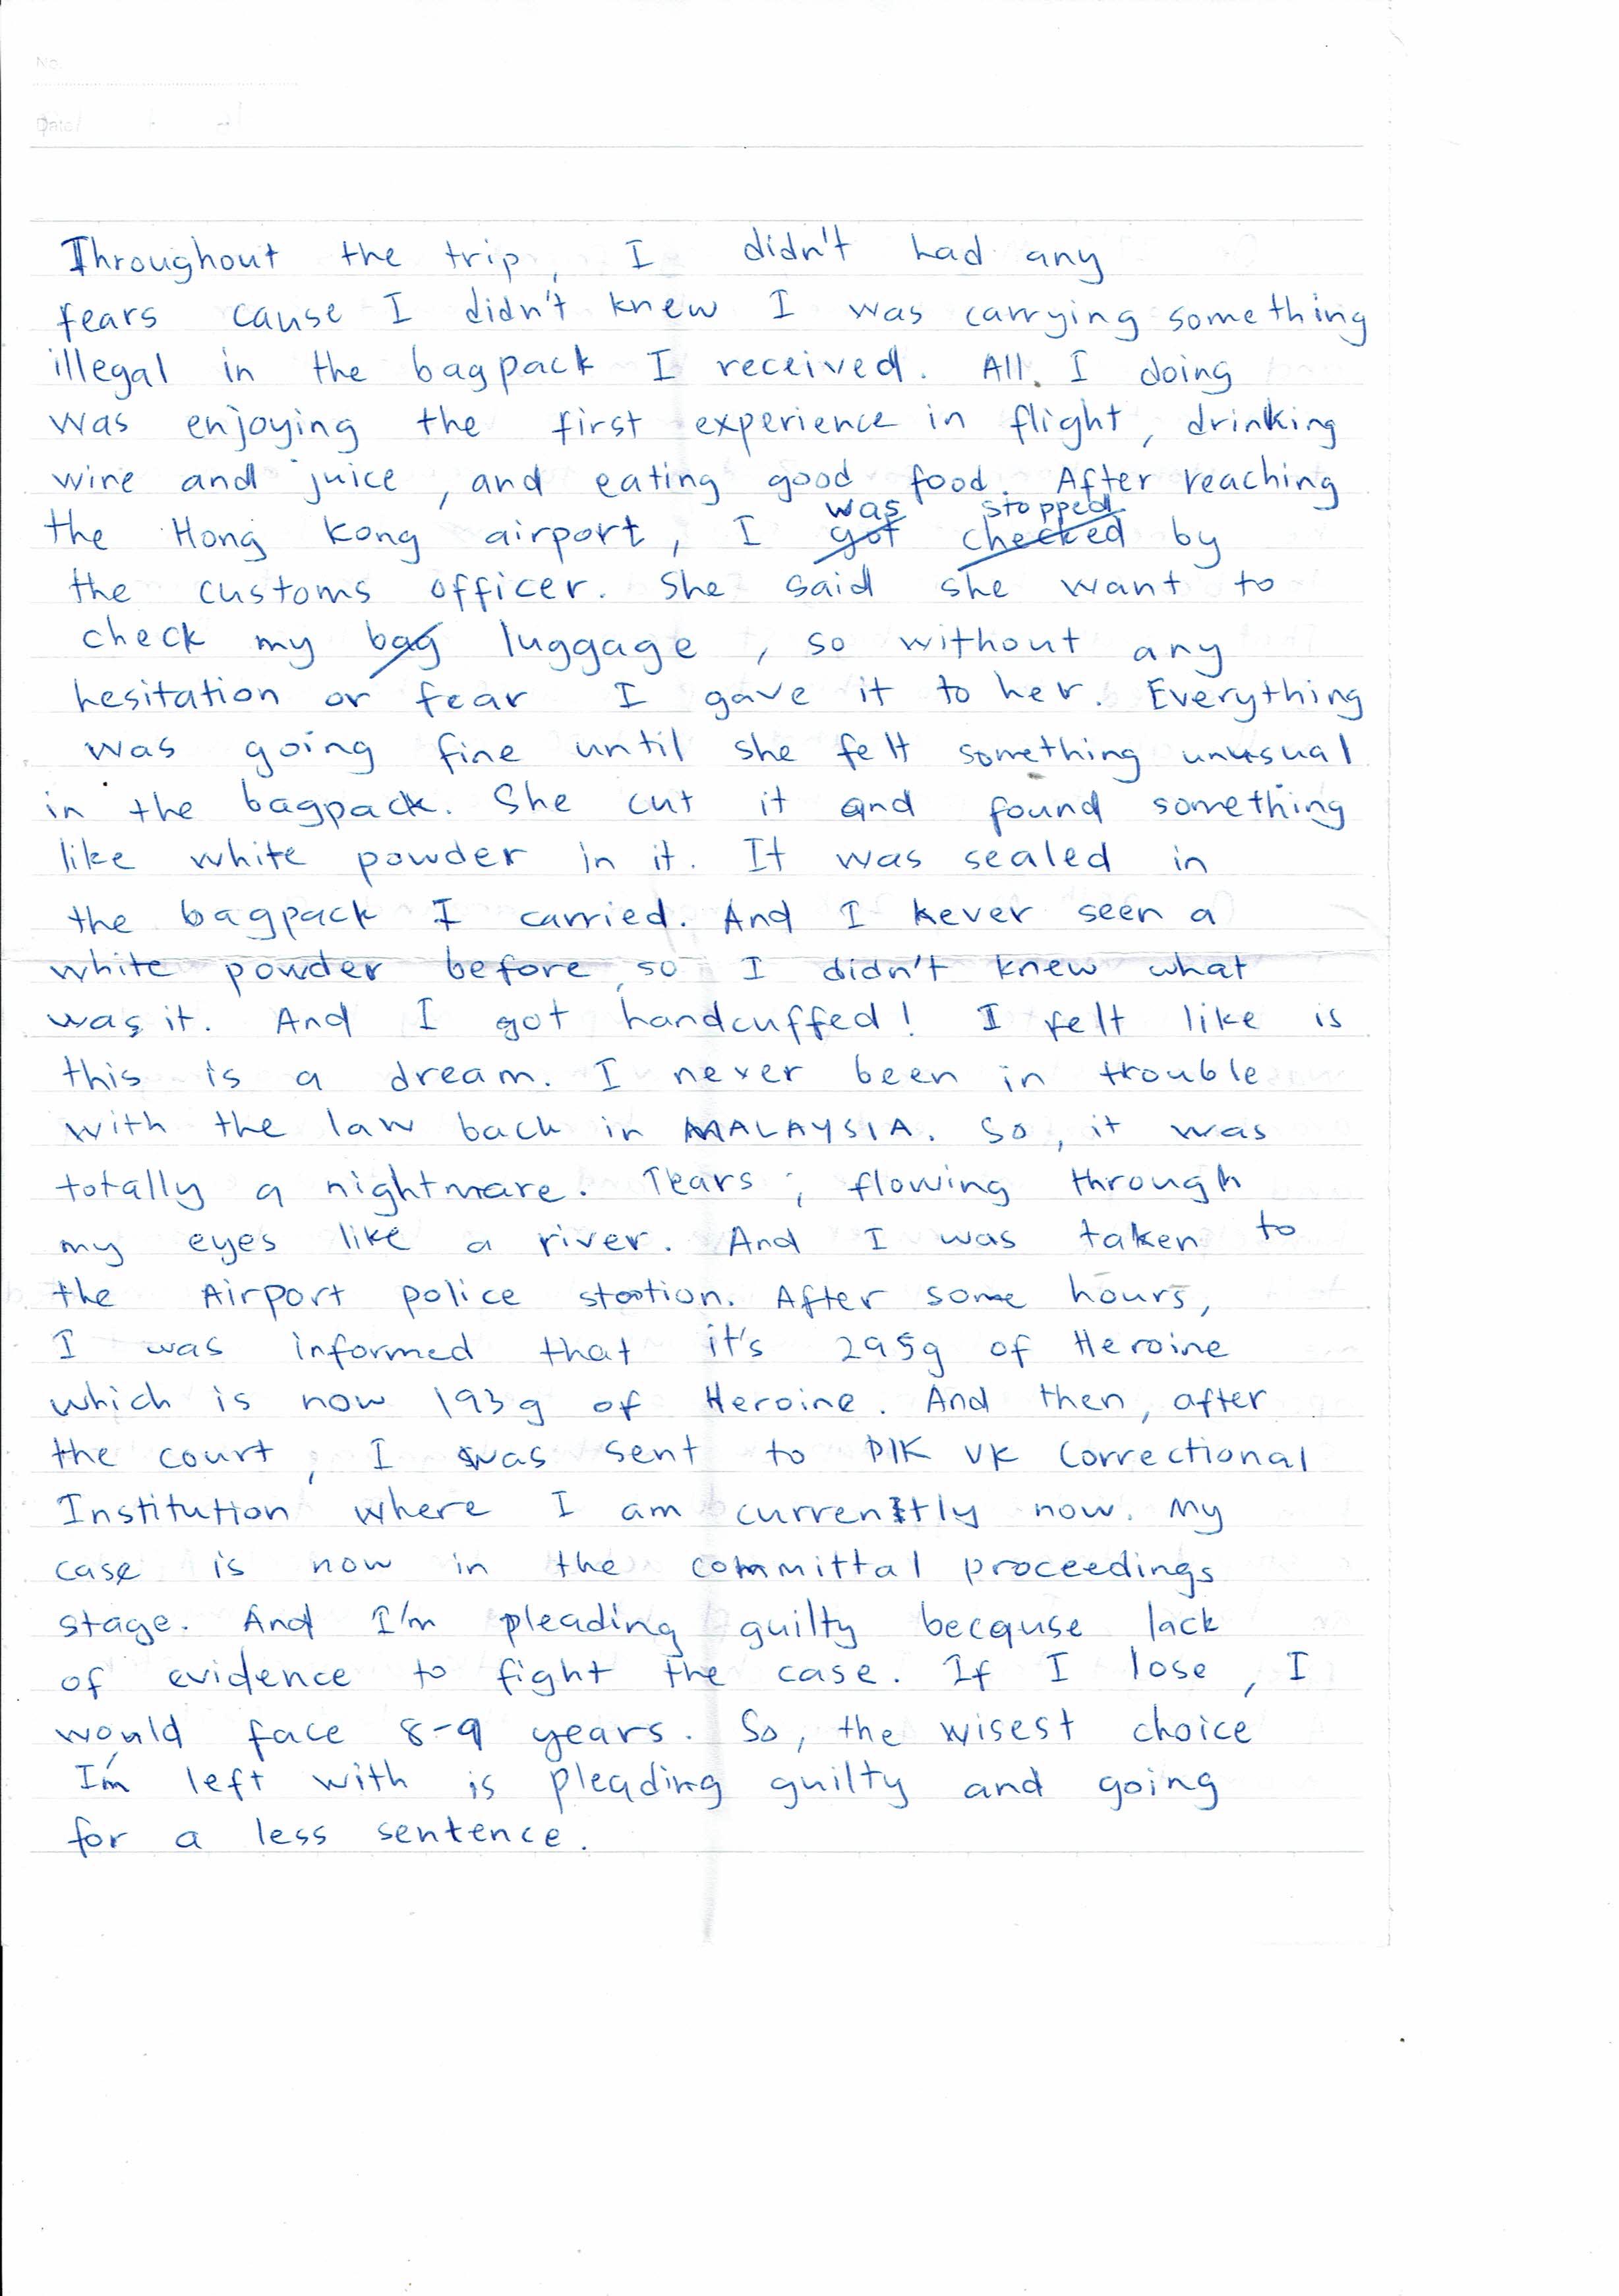 No.
Date
Throughout the trip, I didn't had any
fears cause I didn't knew I was carrying something
illegal in the bagpack I received. All I doing
was enjoying the first experience in flight, drinking
wine and juice, and eating good food. After reaching
was stopped
the Hong Kong airport, I got checked by
the customs officer. She said she want to
check my bag luggage, so without any
hesitation or fear I gave it to her. Everything
was going fine until she felt something unusual
in the bagpack. She cut it and found something
like white powder in it. It was sealed in
the bagpack I carried. And I never seen a
white powder before, so I didn't knew what
was it. And I got handcuffed! I felt like is
this is a dream. I never been in trouble
with the law back in MALAYSIA. So, it was
totally a nightmare. Tears, flowing through
my eyes like a river. And I was taken to
the Airport police station. After some hours,
I was informed that it's 295g of Heroine
which is now 193g of Heroine. And then, after
the court, I was sent to PIK UK Correctional
Institution where I am currently now. My
case is now in the committal proceedings
stage. And I'm pleading guilty because lack
of evidence to fight the case. If I lose, I
would face 8-9 years. So, the wisest choice
I'm left with is pleading guilty and going
for a less sentence.